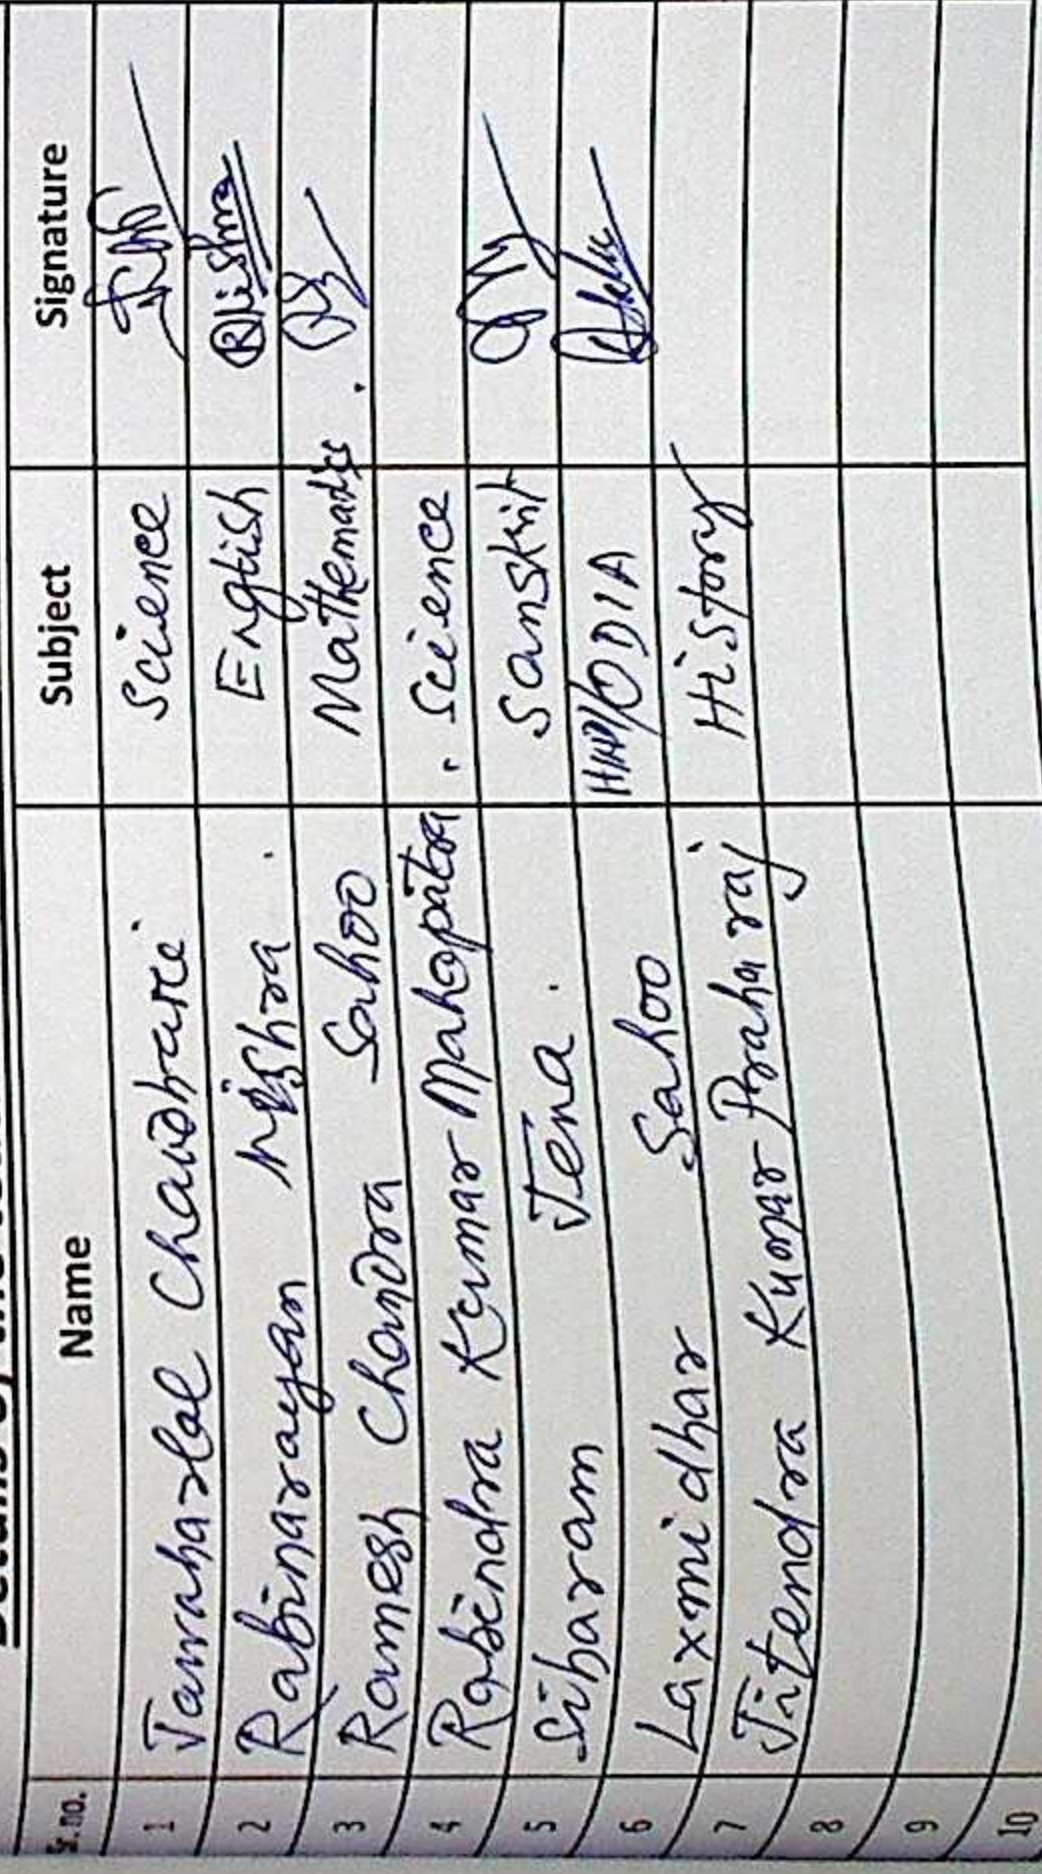 Sr. no. Name Subject Signature
1 Jawaharlal Chaudhari Science
2 Rabinarayan Mishra. English RMishra
3 Ramesh Chandra Sahoo Mathematics.
4 Rabindra Kumar Mahapatra. Science
5 Sibaram Jena. Sanskrit
6 Laxmidhar Sahoo /ODIA
7 Jitendra Kumar Praharaj History
8
9
10